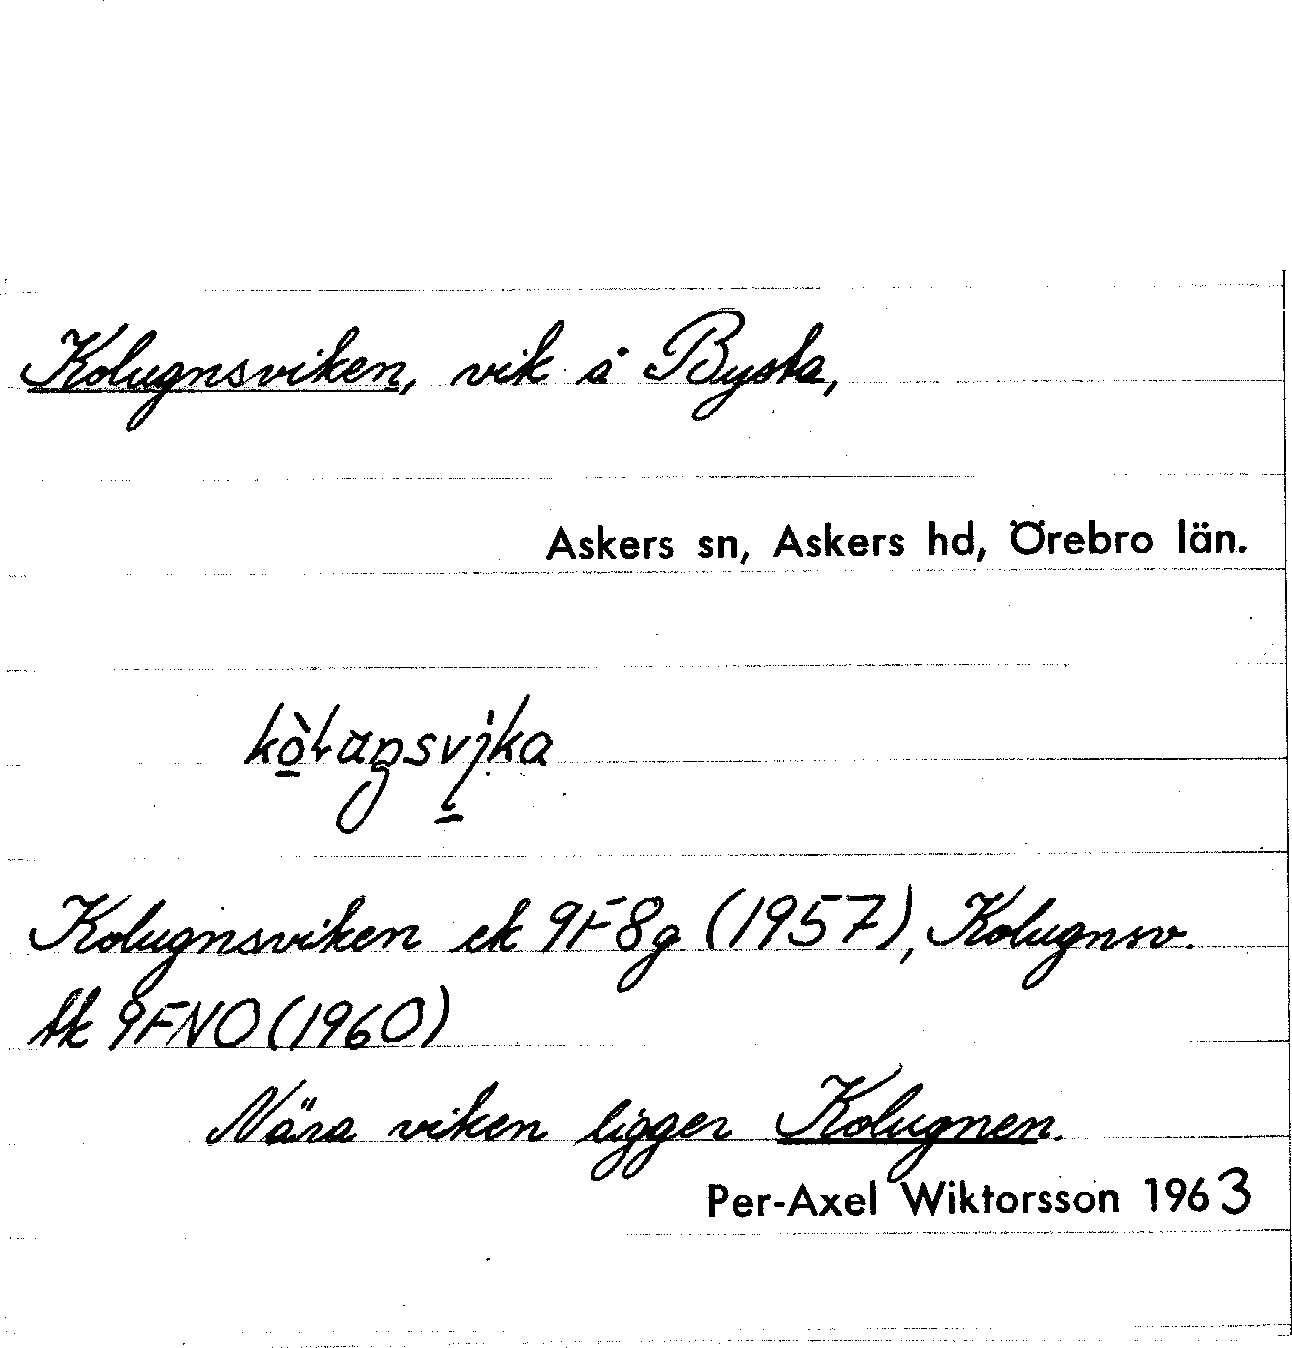 Kolugnsviken, vik å Bysta,
Askers sn, Askers hd, Örebro län.
Kolugnsviken ek 9F8g (1957), Kolugnsv.
tk 9FNO (1960)
Nära viken ligger Kolugnen.
Per-Axel Wiktorsson 1963